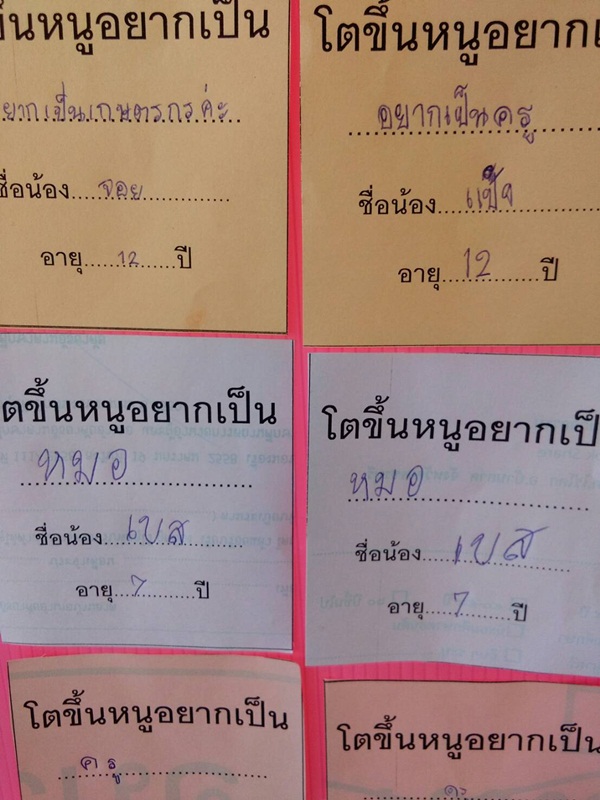 ขึ้นหนูอยากเป็น
อยากเป็นเกษตรกรค่ะ
ชื่อน้อง จอย
อายุ 12 ปี
โตขึ้นหนูอยากเ
อยากเป็นครู
ชื่อน้อง แป้ง
อายุ 12 ปี
ตขึ้นหนูอยากเป็น
หมอ
ชื่อน้อง เบส
อายุ 7 ปี
โตขึ้นหนูอยากเป็
หมอ
ชื่อน้อง เบส
อายุ 7 ปี
โตขึ้นหนูอยากเป็น
ครู
โตขึ้นหนูอยากเป็น